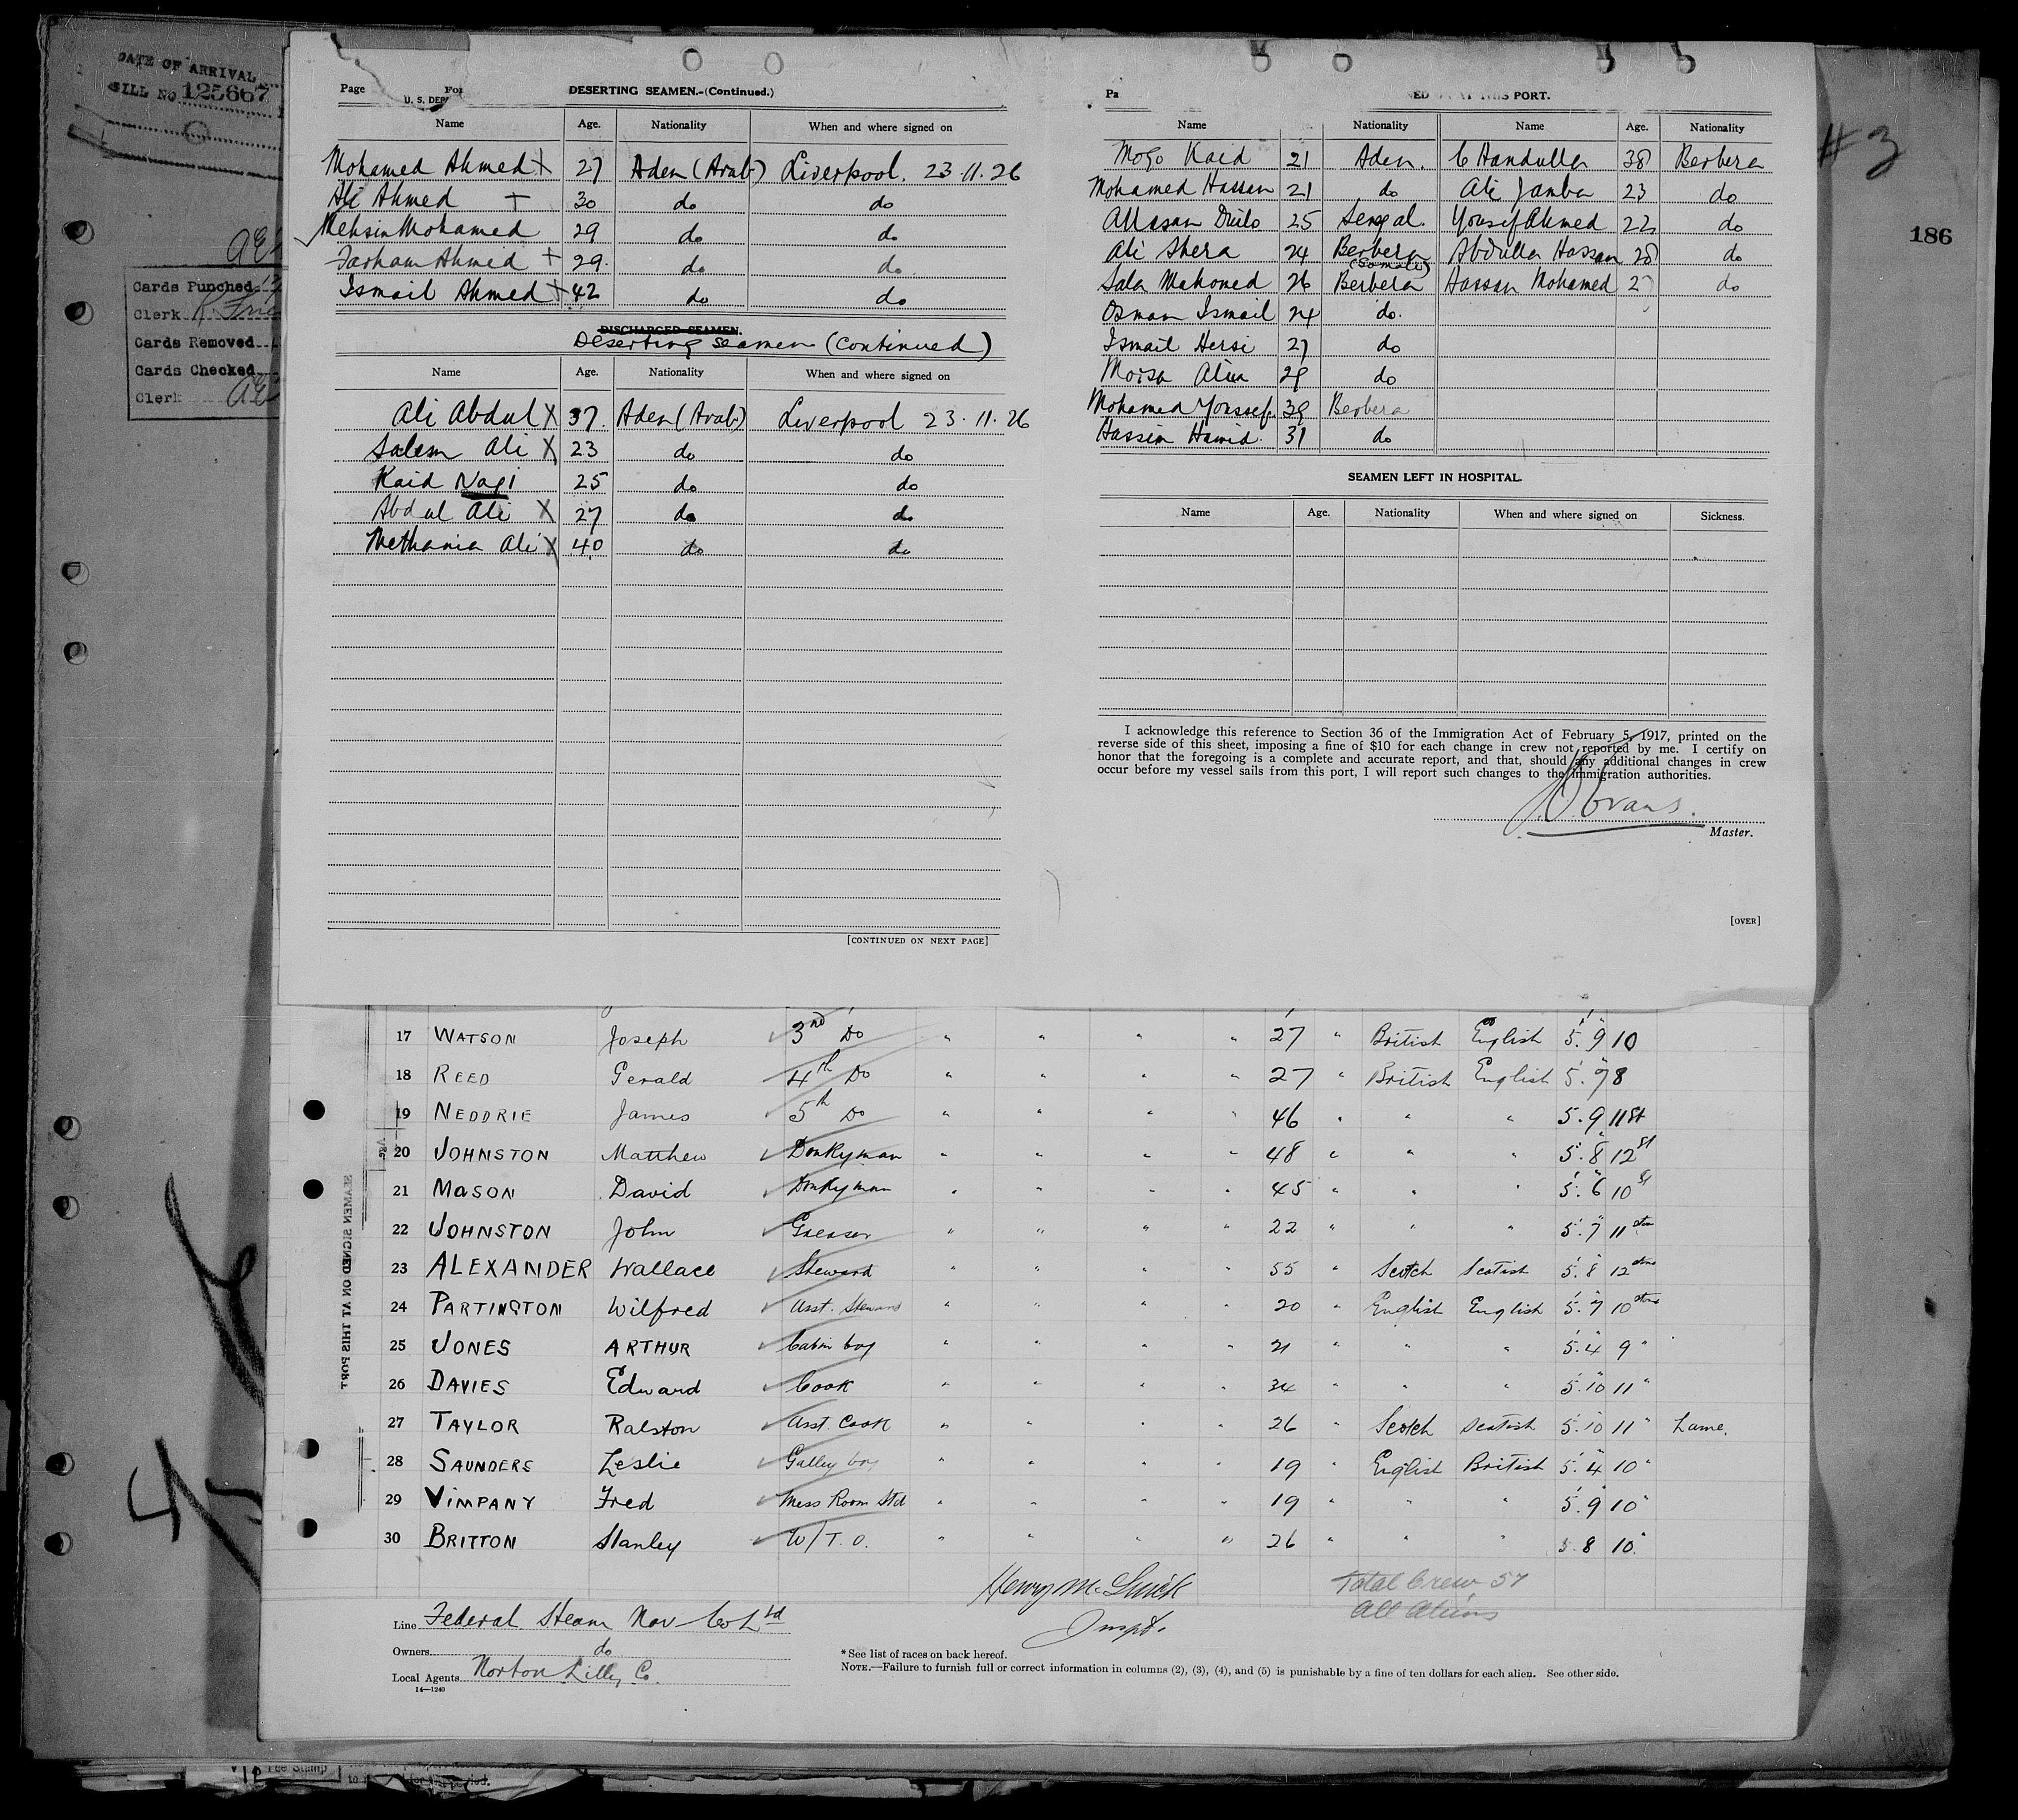 DATE OF ARRIVAL
BILL NO 125667
Cards Punched
Clerk
Cards Removed
Cards Checked
Clerk
Page For
U. S. DEP
DESERTING SEAMEN.-(Continued.)
Name Age. Nationality When and where signed on
Mohamed Ahmed + 27 Aden (Arab) Liverpool. 23.11.26
Ali Ahmed + 30 do do
Mehsin Mohamed 29 do do
Farham Ahmed + 29. do do.
Ismail Ahmed + 42 do do
DISCHARGED SEAMEN.
Deserting Seamen (Continued)
Name Age. Nationality When and where signed on
Ali Abdul X 37. Aden (Arab) Liverpool 23.11.26
Salem Ali X 23 do do
Kaid Nagi 25 do do
Abdul Ali X 27 do do
Methania Ali X 40 do do
[CONTINUED ON NEXT PAGE]
Pa ED AT THIS PORT.
Name Nationality Name Age. Nationality
Kaid 21 Aden. Handulla 38 Berbera
Mohamed Hassan 21 do Ali Jamba 23 do
25 Sengal. Yousif Ahmed 22 do
Ali Shera 24 Berbera (Somali) Abdulla Hassan 28 do
Sala Mahomed 26 Berbera Hassan Mohamed do
Osman Ismail 24 do.
Ismail Hersi 27 do
Moisa 29 do
Mohamed Youssef. 39 Berbera
Hassin Hamid. 31 do
SEAMEN LEFT IN HOSPITAL.
Name Age. Nationality When and where signed on Sickness.
I acknowledge this reference to Section 36 of the Immigration Act of February 5, 1917, printed on the
reverse side of this sheet, imposing a fine of $10 for each change in crew not reported by me. I certify on
honor that the foregoing is a complete and accurate report, and that, should any additional changes in crew
occur before my vessel sails from this port, I will report such changes to the immigration authorities.
Evans.
Master.
[OVER]
# 3
186
SEAMEN SIGNED ON AT THIS PORT
17 WATSON Joseph 3rd Do " " " " 27 " British English 5'.9" 10
18 REED Gerald 4th Do " " " " 27 " British English 5'.7" 8
19 NEDDRIE James 5th Do " " " " 46 " " " 5.9 11 st
20 JOHNSTON Matthew Donkyman " " " " 48 " " " 5'.8" 12 st
21 MASON David Donkyman " " " " 45 " " " 5'.6" 10 st
22 JOHNSTON John Greaser " " " " 22 " " " 5'.7" 11 stn
23 ALEXANDER Wallace Steward " " " " 55 " Scotch Scotish 5'.8" 12 stns
24 PARTINGTON Wilfred Asst. Steward " " " " 20 " English English 5'.7" 10 stns
25 JONES ARTHUR Cabin boy " " " " 21 " " " 5'.4" 9 "
26 DAVIES Edward Cook " " " " 34 " " " 5'.10" 11 "
27 TAYLOR Ralston Asst. Cook " " " " 26 " Scotch Scotish 5'.10 11 " Lame.
28 SAUNDERS Leslie Galley boy " " " " 19 " English British 5'.4" 10 "
29 VIMPANY Fred Mess Room Std " " " " 19 " " " 5'.9" 10 "
30 BRITTON Stanley W/T.O. " " " " 26 " " " 5.8 10 "
Total Crew 57
All Aliens
Inspt.
Line Federal Steam Nav Co Ltd
Owners do
Local Agents Norton Lilly Co.
14—1240
*See list of races on back hereof.
NOTE.—Failure to furnish full or correct information in columns (2), (3), (4), and (5) is punishable by a fine of ten dollars for each alien. See other side.